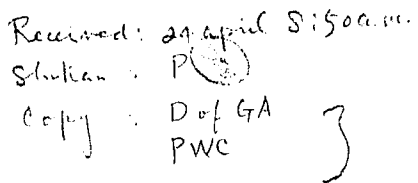 Received: 21 april 8:50 a.m.
: P
Copy : D of GA
PWC